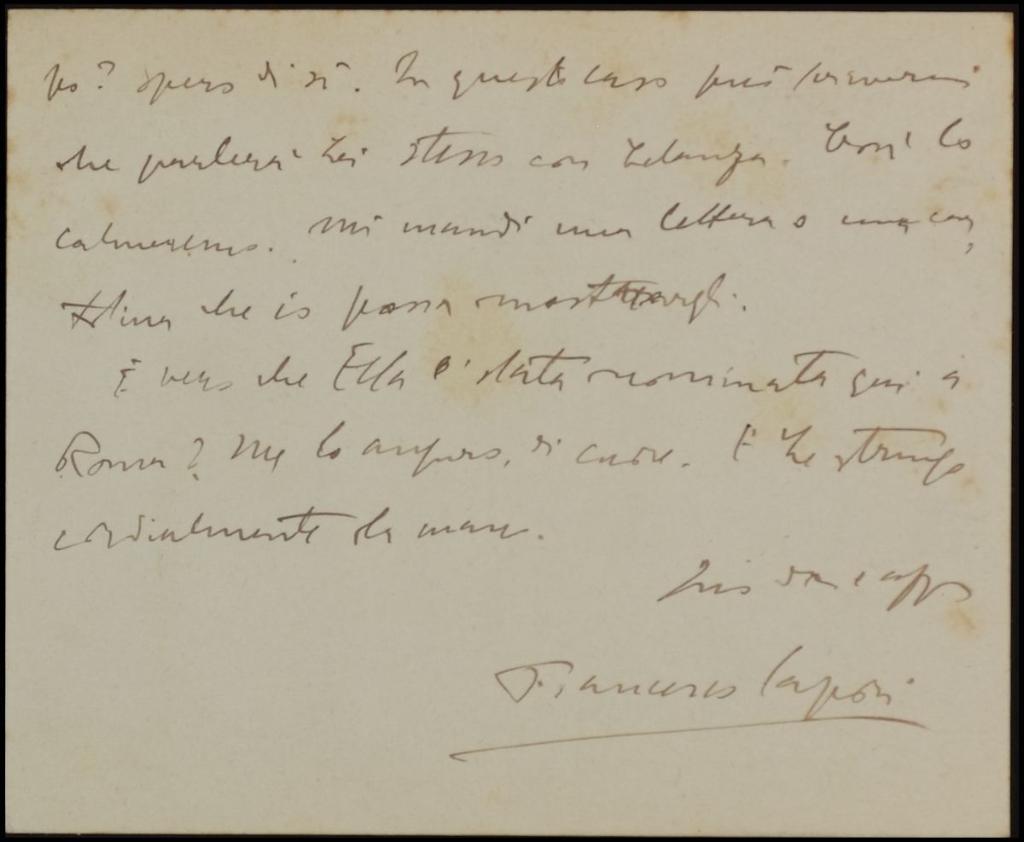 po? Spero di sì. In questo caso può scrivermi
che parlerà Lei stesso con Zelanza. Così lo
calmeremo. Mi mandi una lettera o una car,
tolina che io possa mostrargli.
È vero che Ella è stata nominata qui a
Roma? Me lo auguro, di cuore. E Le stringo
cordialmente la mano.
Suo dev e aff
Francesco Caponi